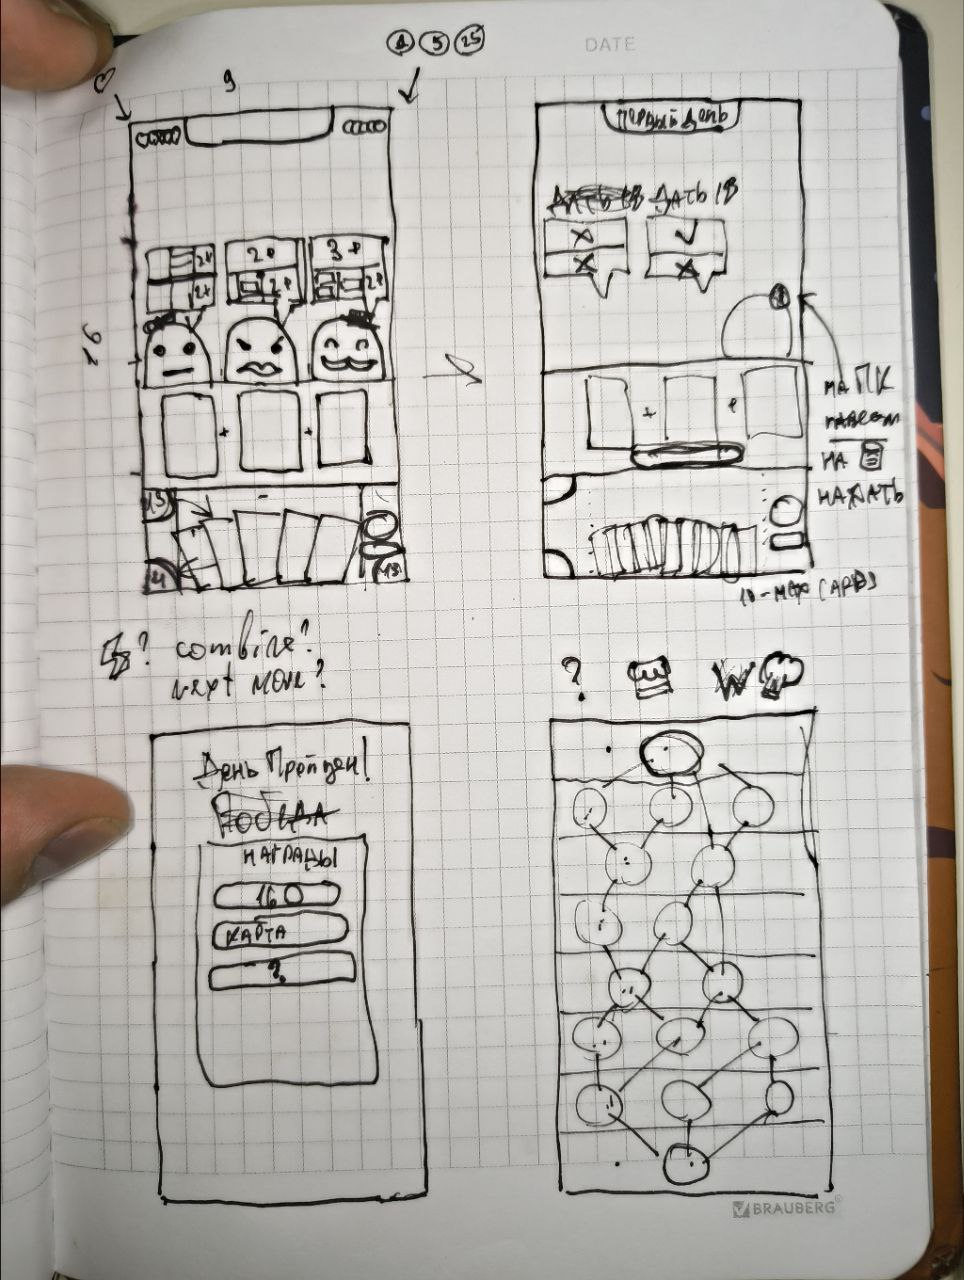 1 5 25
DATE
9
16
2
2
2
2
3
2
Первый День
Дать 18
Дать 18
на ПК
на
нажать
13
10 - max cards
? combine?
next move?
?
W
День Пройден!
Победа
Награды
16
Карта
?
BRAUBERG